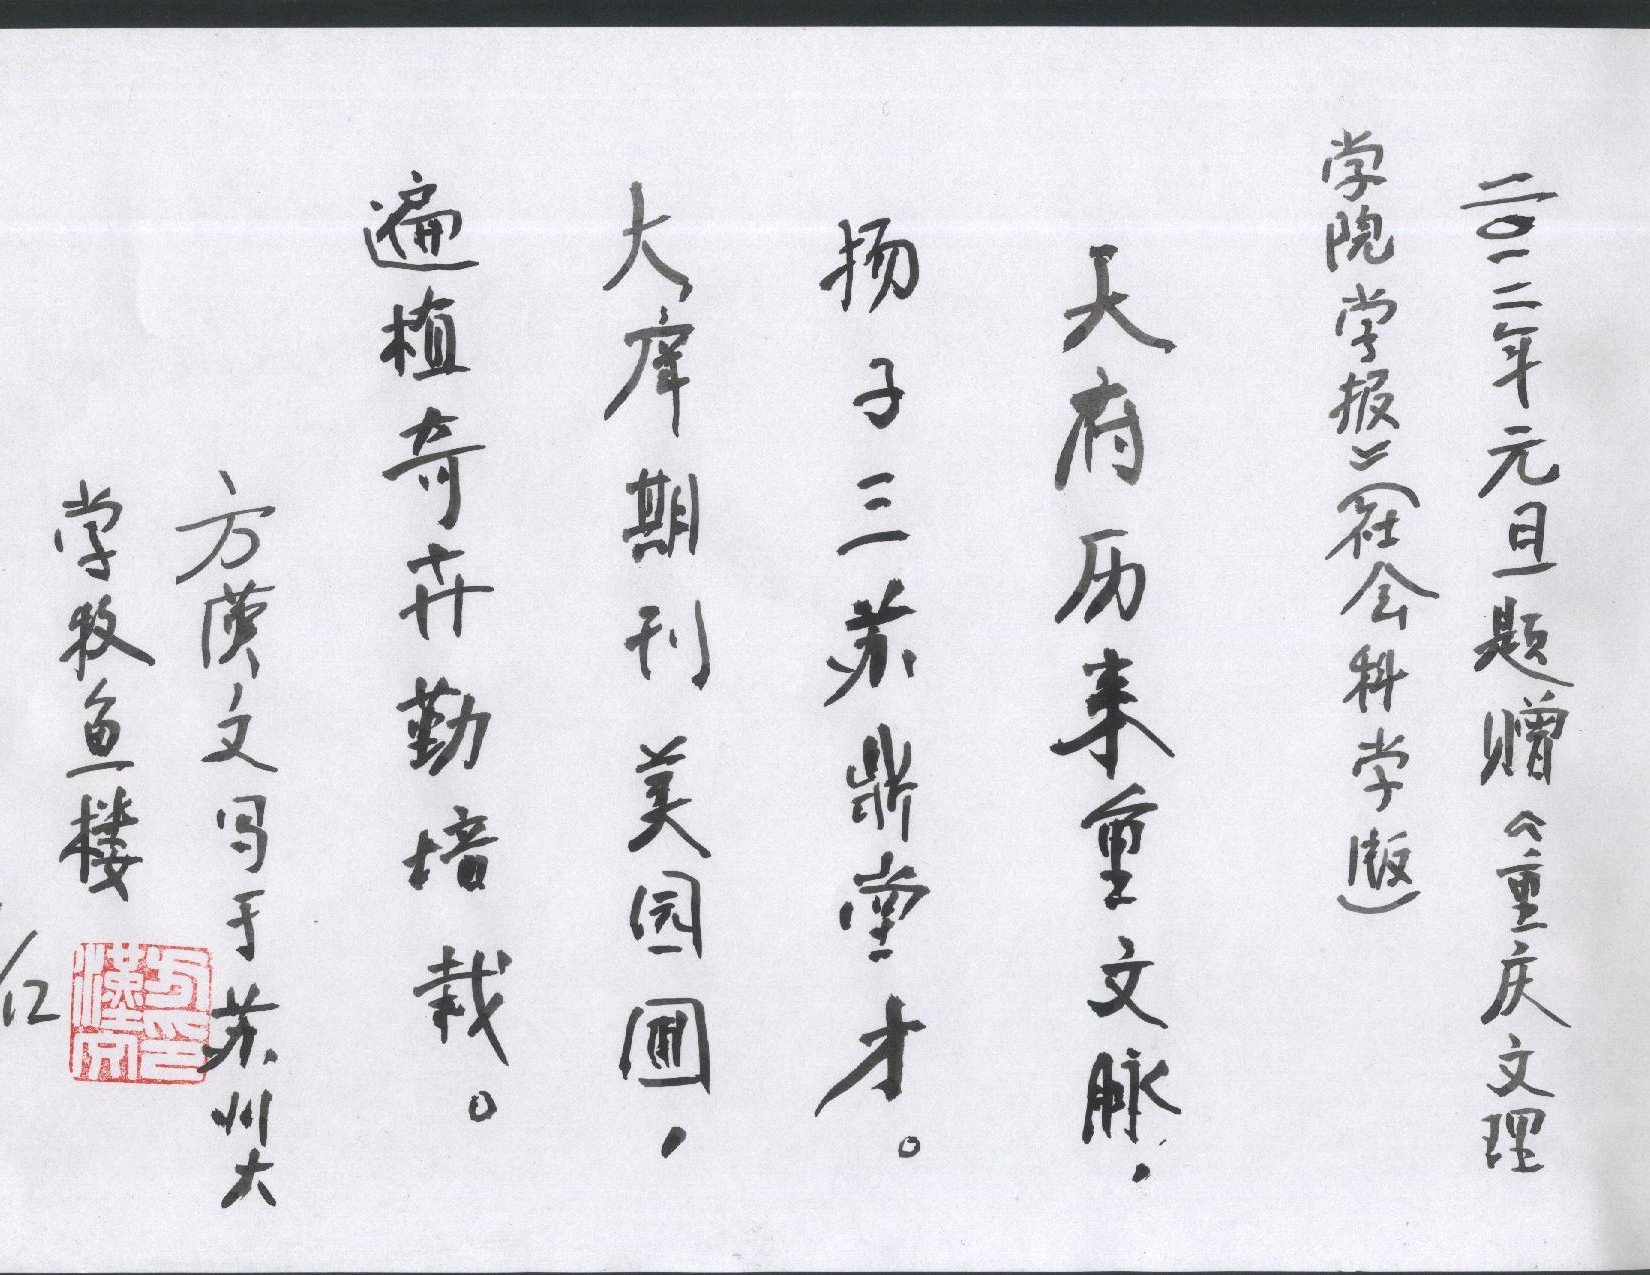 二〇一二年元旦题赠《重庆文理
学院学报》(社会科学版)
天府历来重文脉，
扬子三苏鼎堂才。
大庠期刊美园圃，
遍植奇卉勤培栽。
方漢文写于苏州大
学牧鱼楼
方印
漢文